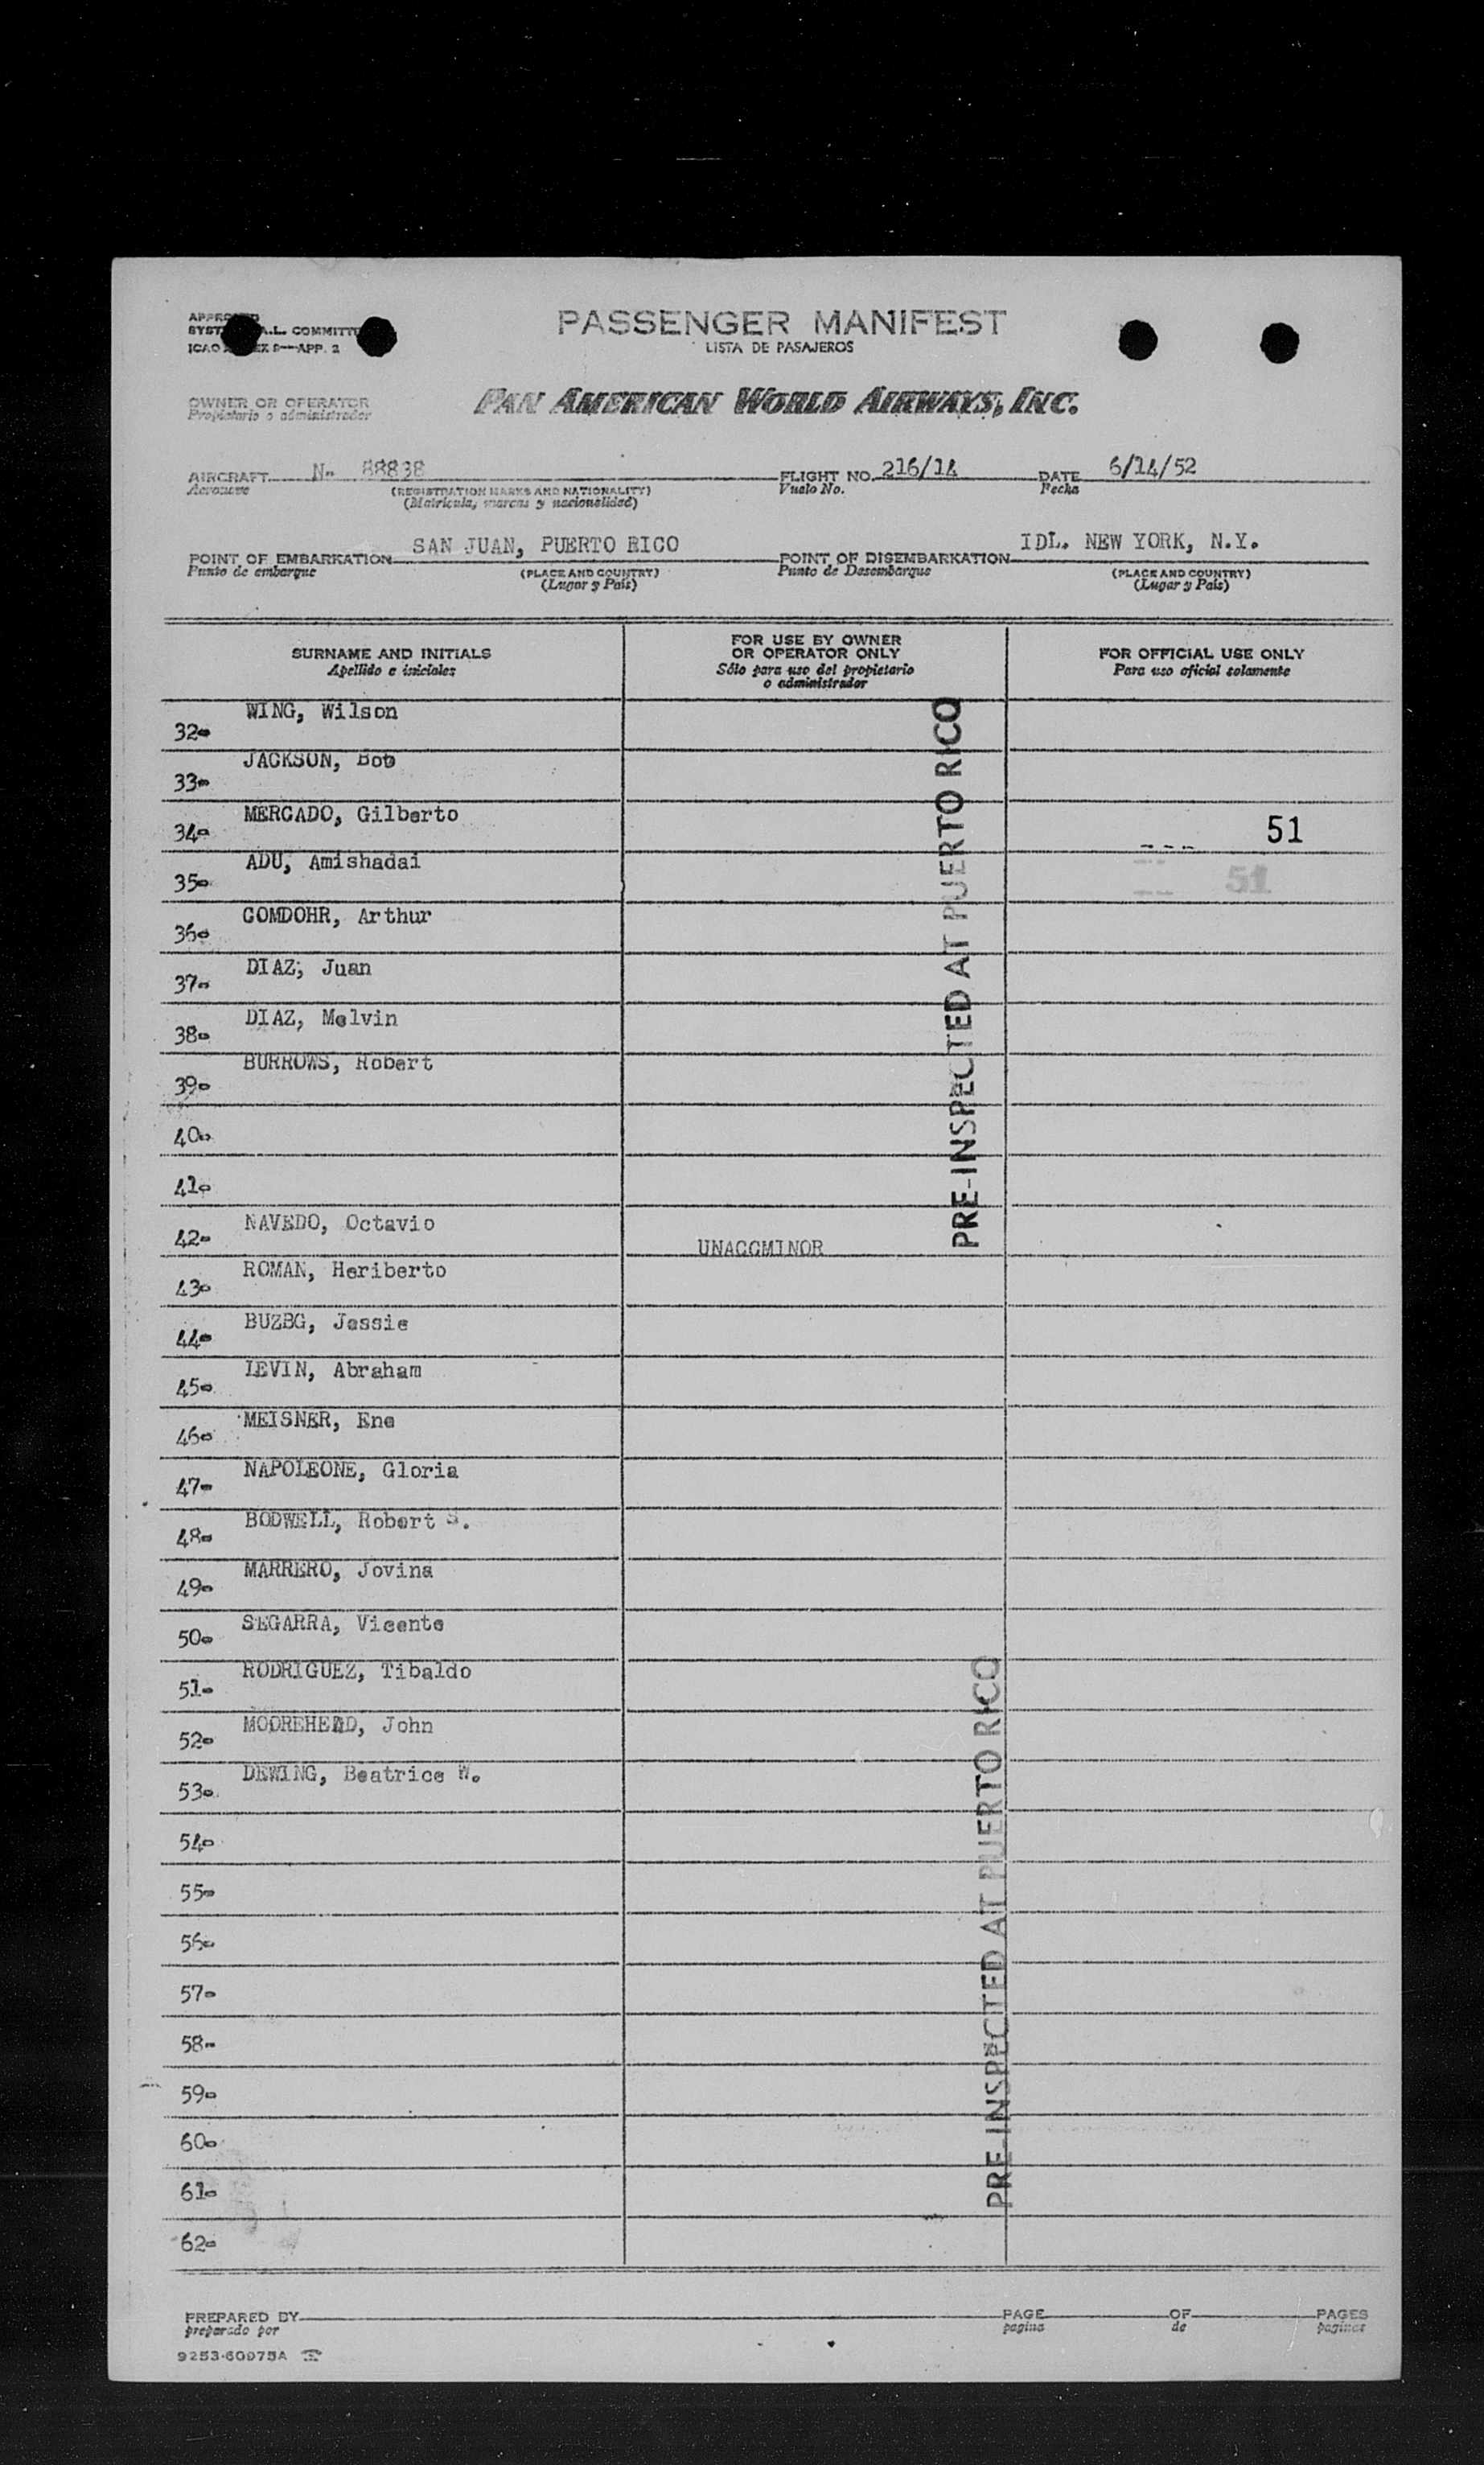 PASSENGER MANIFEST
LISTA DE PASAJEROS
OWNER OR OPERATOR
Propietario o administrador
PAN AMERICAN WORLD AIRWAYS, INC.
AIRCRAFT N- 88838 FLIGHT NO. 216/14 DATE 6/14/52
Aeronave (REGISTRATION MARKS AND NATIONALITY) Vuelo No. Fecha
(Matricula, marcas y nacionalidad)
POINT OF EMBARKATION SAN JUAN, PUERTO RICO POINT OF DISEMBARKATION IDL. NEW YORK, N.Y.
Punto de embarque (PLACE AND COUNTRY) Punto de Desembarque (PLACE AND COUNTRY)
(Lugar y País) (Lugar y País)
SURNAME AND INITIALS
Apellido e iniciales
FOR USE BY OWNER
OR OPERATOR ONLY
Sólo para uso del propietario
o administrador
FOR OFFICIAL USE ONLY
Para uso oficial solamente
32- WING, Wilson
33- JACKSON, Bob
34- MERCADO, Gilberto 51
35- ADU, Amishadai 51
36- GOMDOHR, Arthur
37- DIAZ, Juan
38- DIAZ, Melvin
39- BURROWS, Robert
40-
41-
42- NAVEDO, Octavio UNACCMINOR
43- ROMAN, Heriberto
44- BUZBG, Jessie
45- LEVIN, Abraham
46- MEISNER, Ene
47- NAPOLEONE, Gloria
48- BODWELL, Robert S.
49- MARRERO, Jovina
50- SEGARRA, Vicente
51- RODRIGUEZ, Tibaldo
52- MOOREHEAD, John
53- DEWING, Beatrice W.
54-
55-
56-
57-
58-
59-
60-
61-
62-
PRE-INSPECTED AT PUERTO RICO
PRE-INSPECTED AT PUERTO RICO
PREPARED BY PAGE OF PAGES
preparado por pagina de paginas
9253-60975A